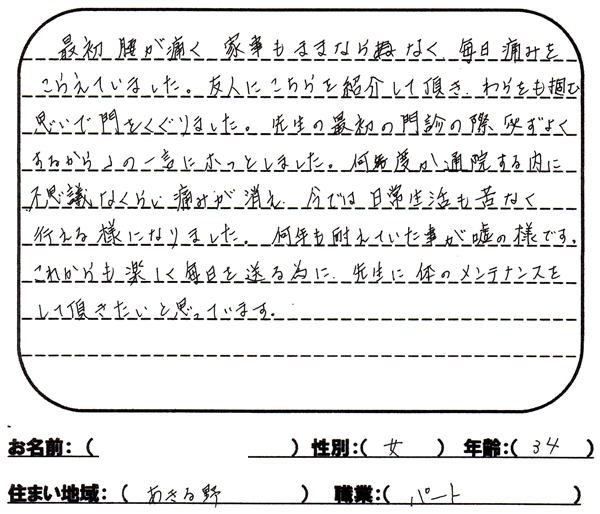 最初 腰が痛く 家事もままならなく、毎日痛みを
こらえていました。友人にこちらを紹介して頂き、わらをも掴む
思いで門をくぐりました。先生の最初の門診の際、必ずよく
なるから」の一言にホっとしました。何度か通院する内に
不思議なくらい痛みが消え、今では日常生活も苦なく
行える様になりました。何年も耐えていた事が嘘の様です。
これからも楽しく毎日を送る為に、先生に体のメンテナンスを
して頂きたいと思っています。
お名前：（　　　） 性別：（女） 年齢：（34）
住まい地域：（あきる野） 職業：（パート）